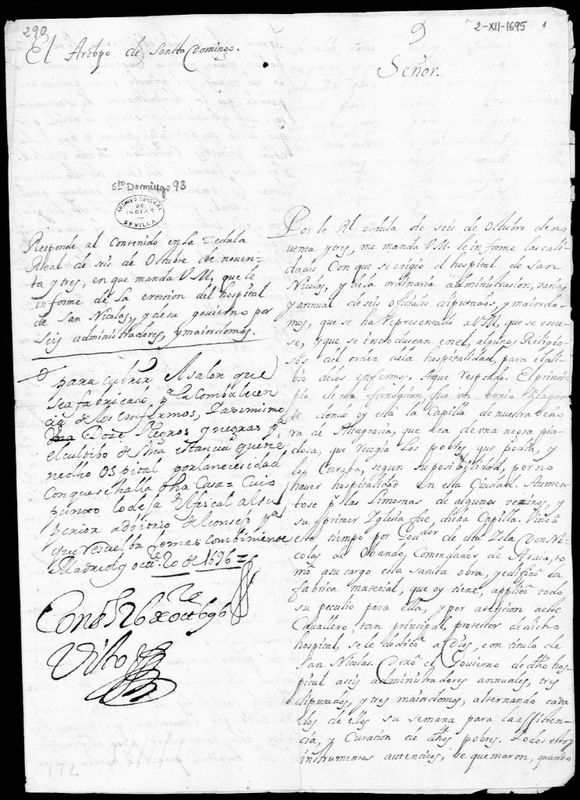 290
El Arobpo de Sancto Domingo.
9
2-XII-1695
Señor.
Sto Domingo 93
ARCHIVO GENERAL
DE
INDIAS
SEVILLA
Responde al Contenido en la Zedula
Real de seis de Octubre de noven-
ta y tres, en que manda V.M. que le
informe de la ereccion del hospital
de San Nicolas, y de su govierno por
seis administradores, y maiordomos.
para cubrir el salon que
sea fabricado pa la Combalecen
cia de los enfermos, I asimismo
Doze Negros y negras pa
el cultibo de una estancia que tiene
necho ospital por la necesidad
Con que se halla dha Casa = Cuio
punto lo deja el fiscal al su
perior adbitrio del consejo pa
que resuelba tomar combiniente
Madrid y octe 20 de 1696 =
Conso 26 de octe 696
Visto
Por la Rl zedula de seis de Octubre de no
venta y tres, me manda V.M. le informe las cali
dades Con que se erigio el hospital de San
Nicolas, y de la ordinaria administracion, varias
y annual de seis oficiales diputados, y maiordo
mos, que se ha representado a V.M. que se escu
se, y que se introduscan en el, algunos Religio
sos del orden de la hospitalidad, para el ali
bio de los enfermos. A que respondo. El princi
pio de esta fundacion, fue un bohio
donde oy está la Capilla de nuestra Seño
ra de Altagracia, que era de una negra pia
dosa, que recogia los pobres que podia, y
les Curaba, segun su posibilidad, por no
haver hospitalidad en esta Ciudad. Aumen
tose pr las limosnas de algunos vezinos, y
su primer Iglesia fue dicha Capilla. Vino á
este tiempo por Gouor de esta Isla Don Ni
colas de Obando, Comendador de
mó a su cargo esta santa obra, y edificó la
fabrica material, que oy tiene, applicó todo
su peculio para ella, y por atencion a este
Cavallero, tan principal, protector de dicho
hospital, se le dedicó a Dios, con titulo de
San Nicolas. Crió el Govierno de dho hos
pital a seis administradores annuales, tres
diputados, y tres maiordomos, alternando cada
dos de ellos su semana para la assisten
cia, y Curacion de dhos pobres. Todos estos
instrumentos autenticos, se quemaron, quando
192